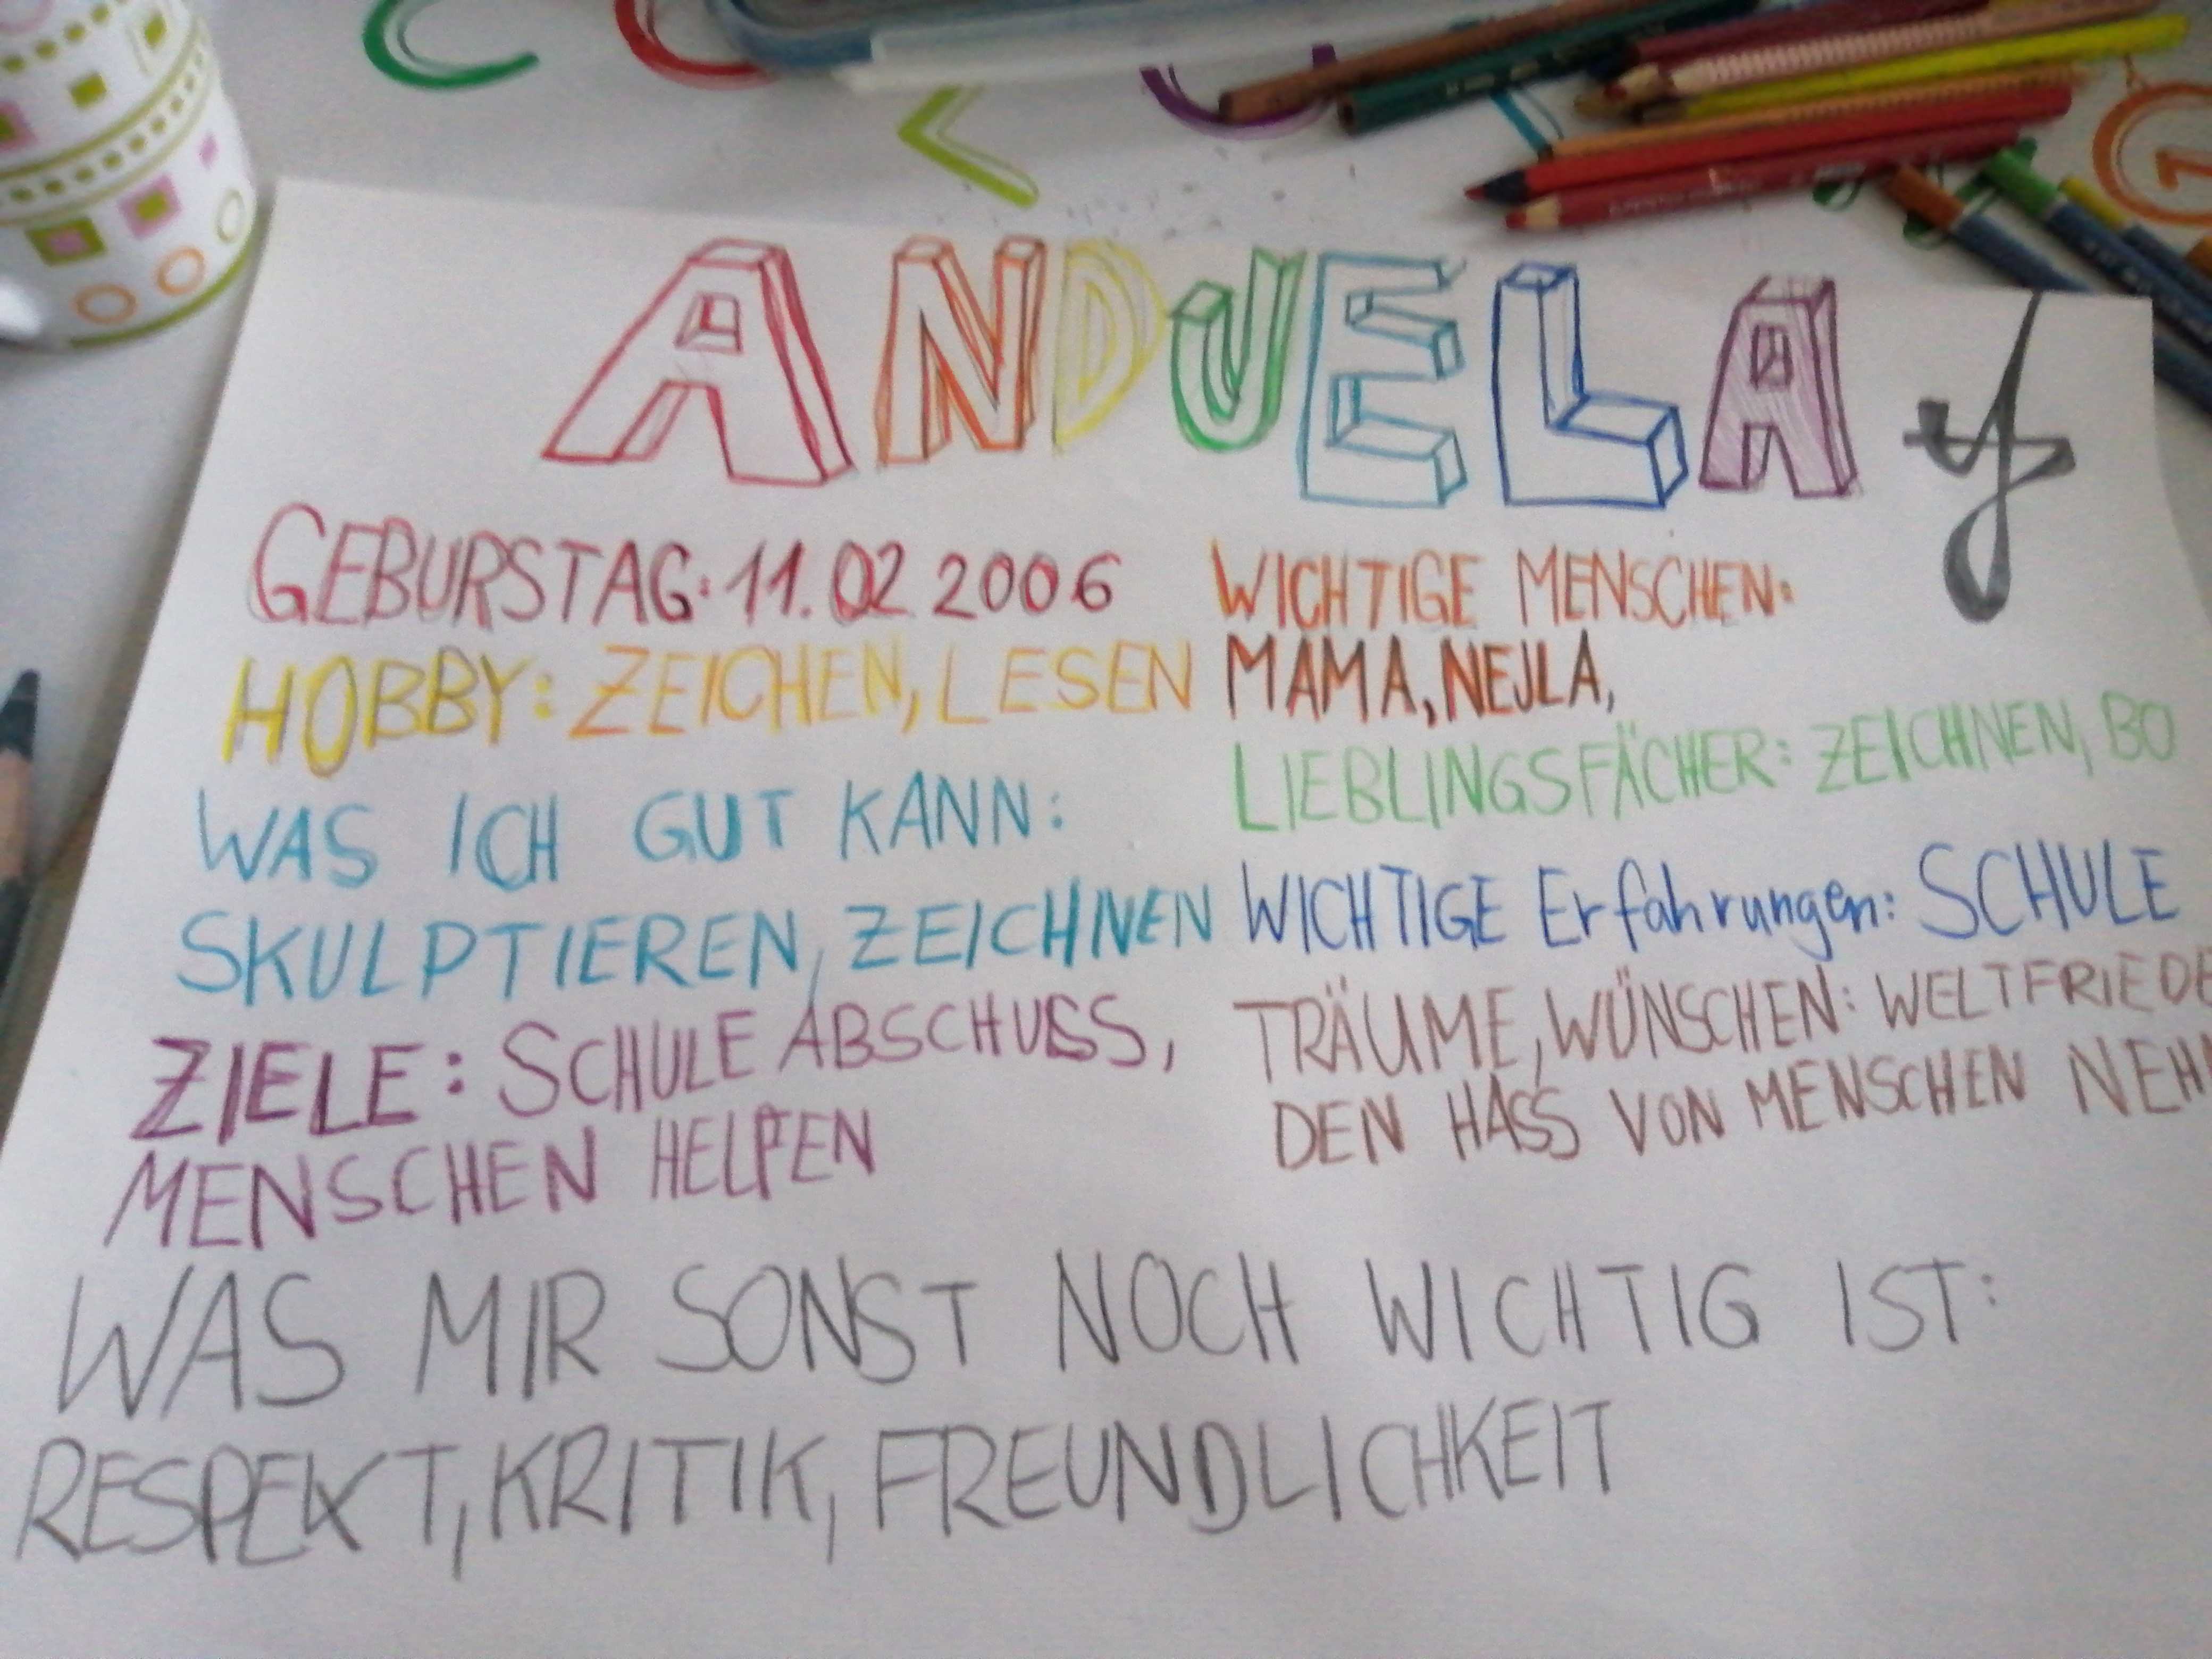 ANDUELA
GEBURSTAG: 11.02 2006
HOBBY: ZEICHEN, LESEN
WAS ICH GUT KANN:
SKULPTIEREN, ZEICHNEN
ZIELE: SCHULE ABSCHUSS,
MENSCHEN HELFEN
WICHTIGE MENSCHEN:
MAMA, NEJLA,
LIEBLINGSFÄCHER: ZEICHNEN, BO
WICHTIGE Erfahrungen: SCHULE
TRÄUME, WÜNSCHEN: WELTFRIEDE
DEN HASS VON MENSCHEN NEH
WAS MIR SONST NOCH WICHTIG IST:
RESPEKT, KRITIK, FREUNDLICHKEIT